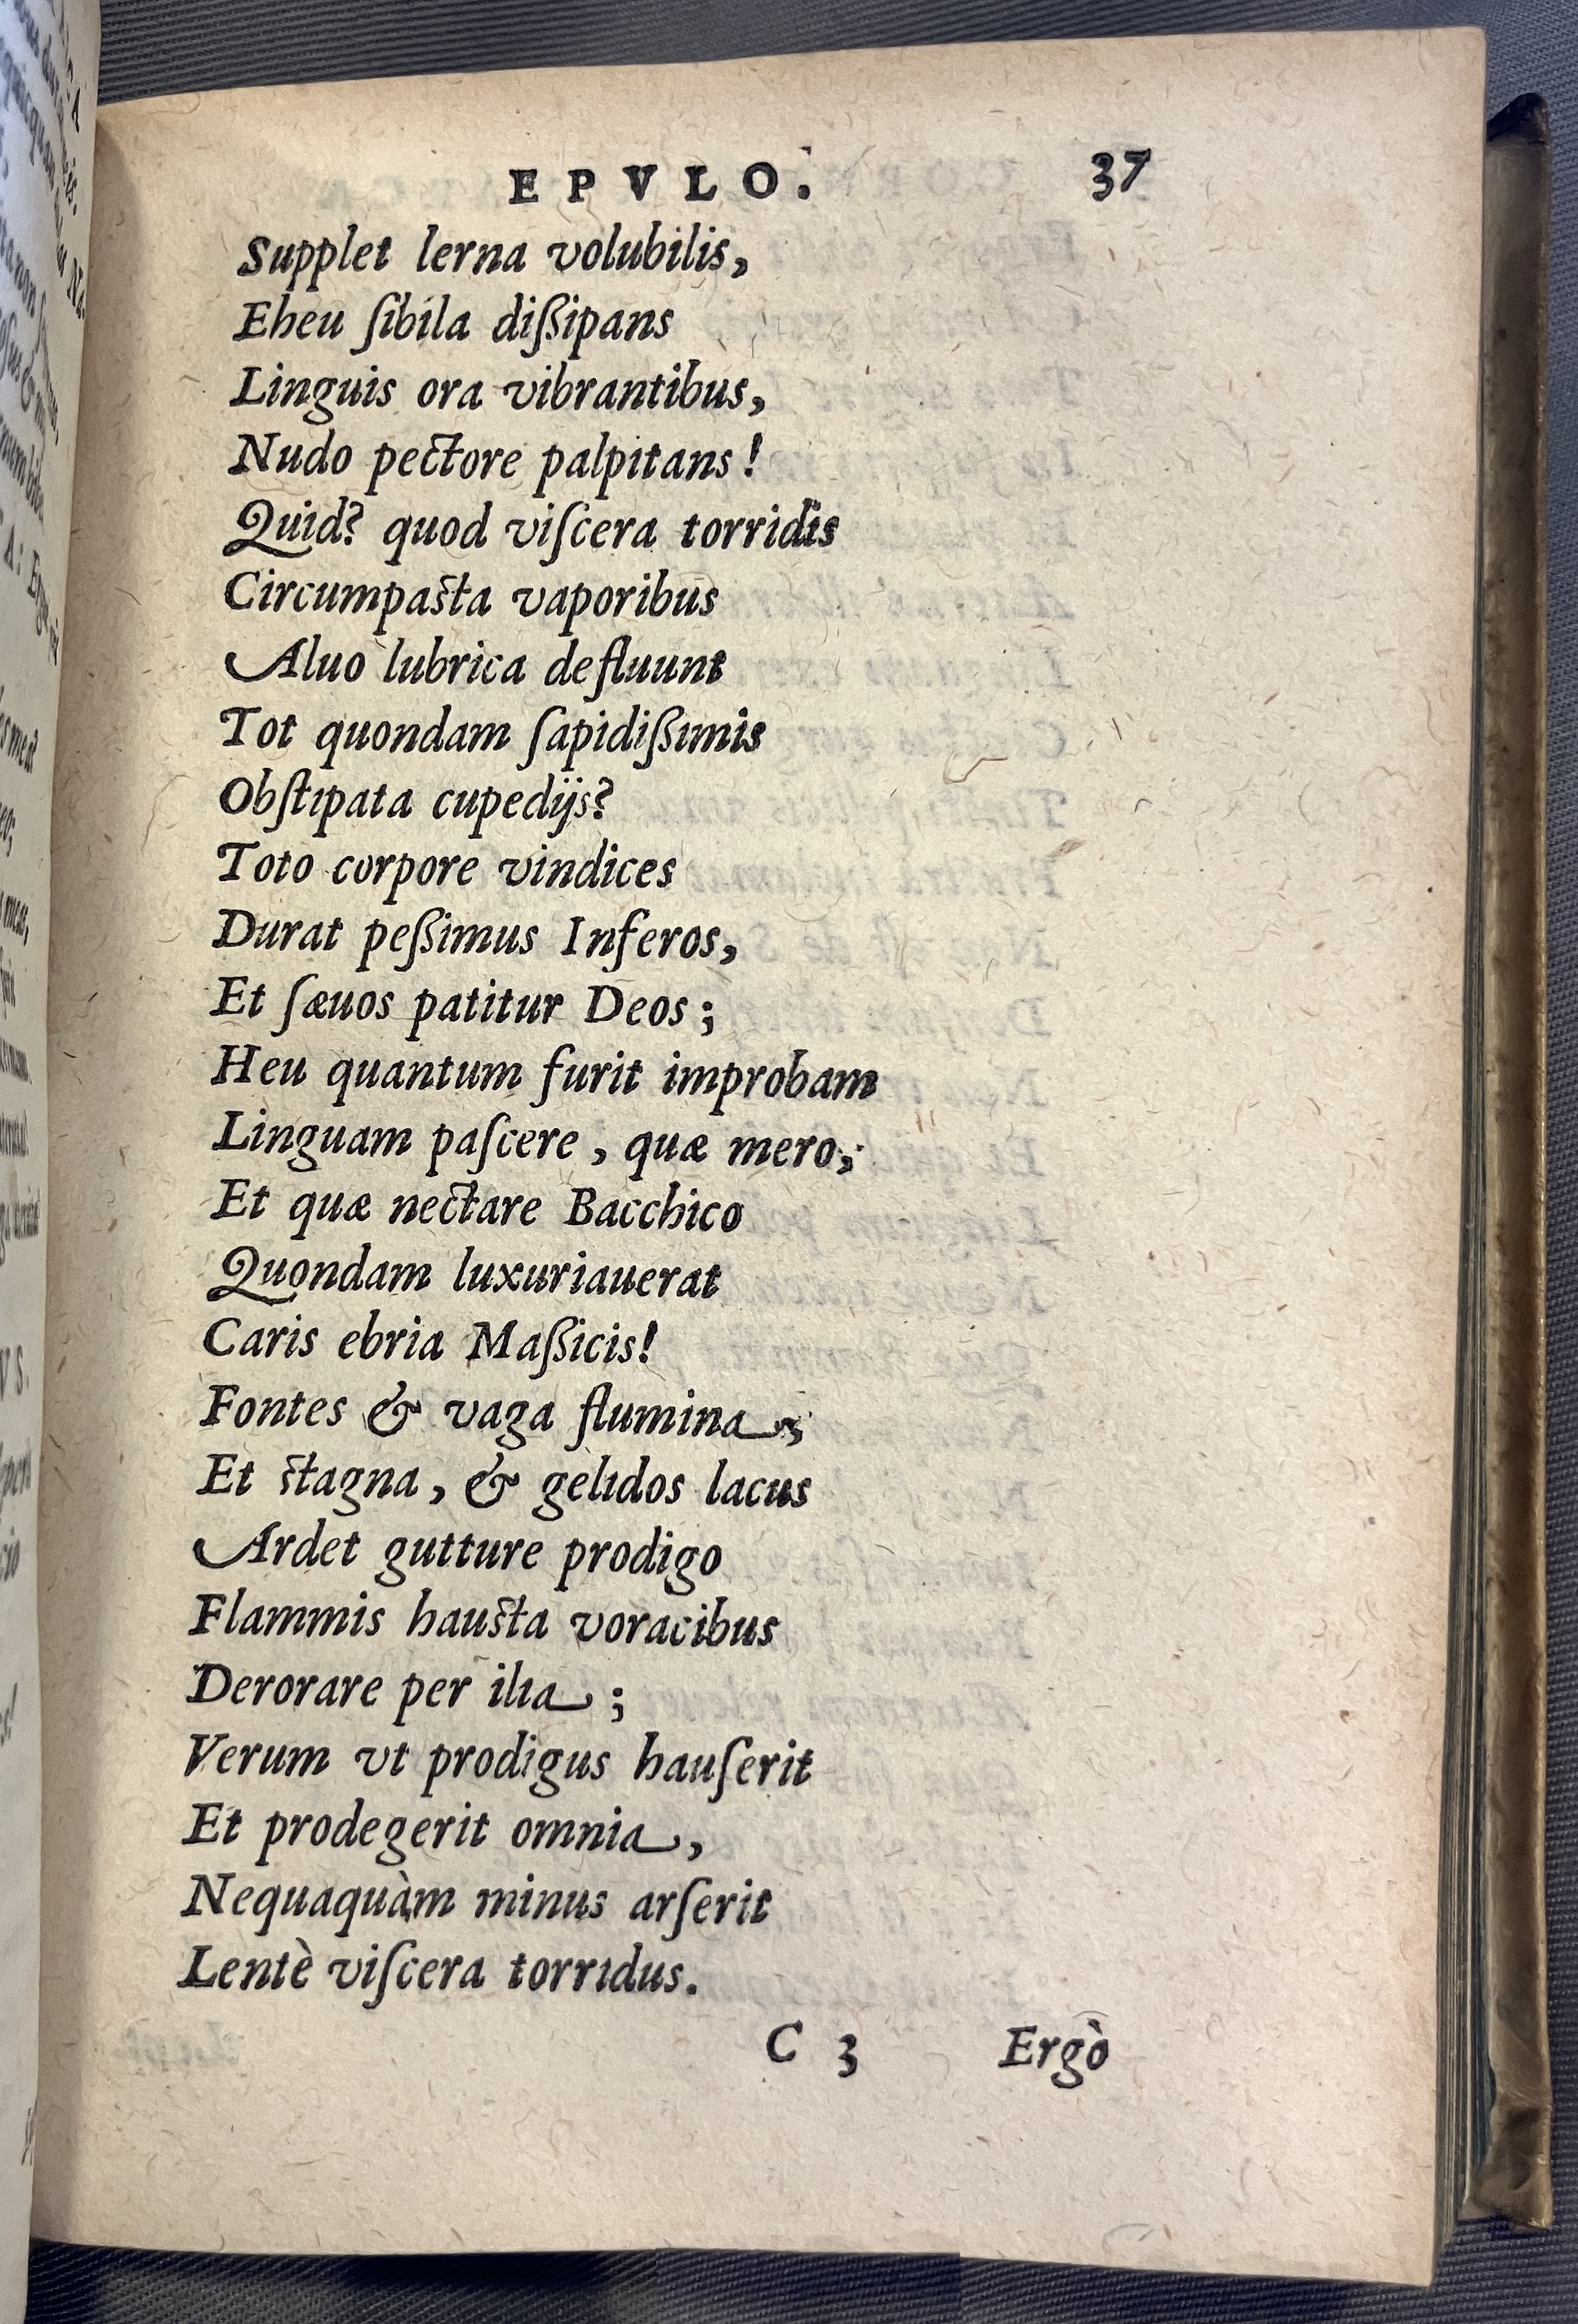 EPVLO. 37
Supplet lerna volubilis,
Eheu ſibila diſsipans
Linguis ora vibrantibus,
Nudo pectore palpitans!
Quid? quod viſcera torridis
Circumpasta vaporibus
Aluo lubrica defluunt
Tot quondam ſapidiſsimis
Obſtipata cupedijs?
Toto corpore vindices
Durat peſsimus Inferos,
Et ſæuos patitur Deos;
Heu quantum furit improbam
Linguam paſcere, quæ mero,
Et quæ nectare Bacchico
Quondam luxuriauerat
Caris ebria Maſsicis!
Fontes & vaga flumina,
Et stagna, & gelidos lacus
Ardet gutture prodigo
Flammis hausta voracibus
Derorare per ilia;
Verum vt prodigus hauſerit
Et prodegerit omnia,
Nequaquàm minus arſerit
Lentè viſcera torridus.
C 3 Ergò